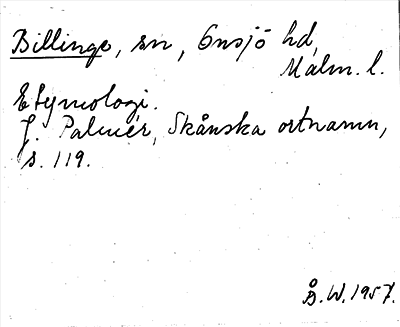 Billinge, sn, Onsjö hd,
Malm. l.
Etymologi.
J. Palmér, Skånska ortnamn,
s. 119.
Å.W. 1957.